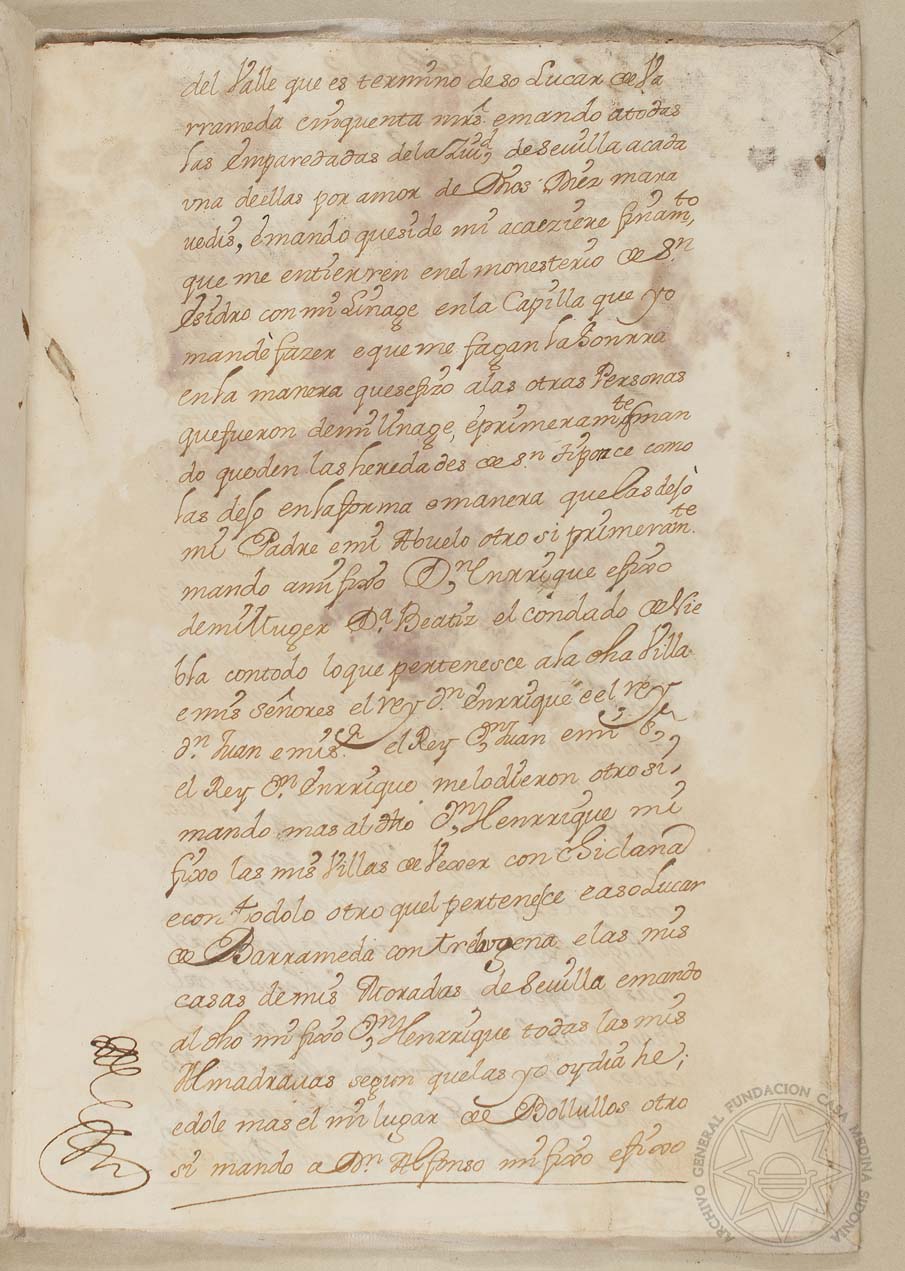 del Valle que es termino de so Lucar de Va
rrameda cinquenta mrs. emando atodas
las emparedadas dela Ziud. de Sevilla acada
vna deellas por amor de Dios Diez mara
uedis, émando que si de mi acaeziere finamto,
que me entierren enel monesterio de Sn.
Ysidro con mi Linage en la Capilla que yo
mandè fazer e que me fagan la honrra
en la manera que se fizo alas otras Personas
que fueron de mi linage, éprimeramte man
do queden las heredades de Sn. Tiponce como
las deso en la forma emanera que las desò
mi Padre emi Abuelo otro si primeramte.
mando ami fixo Dn. Enrrique efixo
demi Muger Da. Beatiz el condado de Nie
bla contodo lo que pertenesce ala dha Villa
e mis señores el rey dn. énrrique e el rey
dn. Juan emi s.r el Rey dn. Juan emi s.r
el Rey dn. énrrique melo dieron otro si,
mando mas al dho dn. Henrrique mi
fixo las mis Villas de Vexer con Chiclana
econ todo lo otro quel pertenesce e a so Lucar
de Barrameda con trebugena e las mis
casas de mis Moradas de Sevilla emando
al dho mi fixo dn. Henrrique todas las mis
Almadravas segun que las yo oy dia he;
edole mas el mi lugar de Bollullos otro
si mando a Dn. Alfonso mi fixo efixo
ARCHIVO GENERAL FUNDACION CASA MEDINA SIDONIA